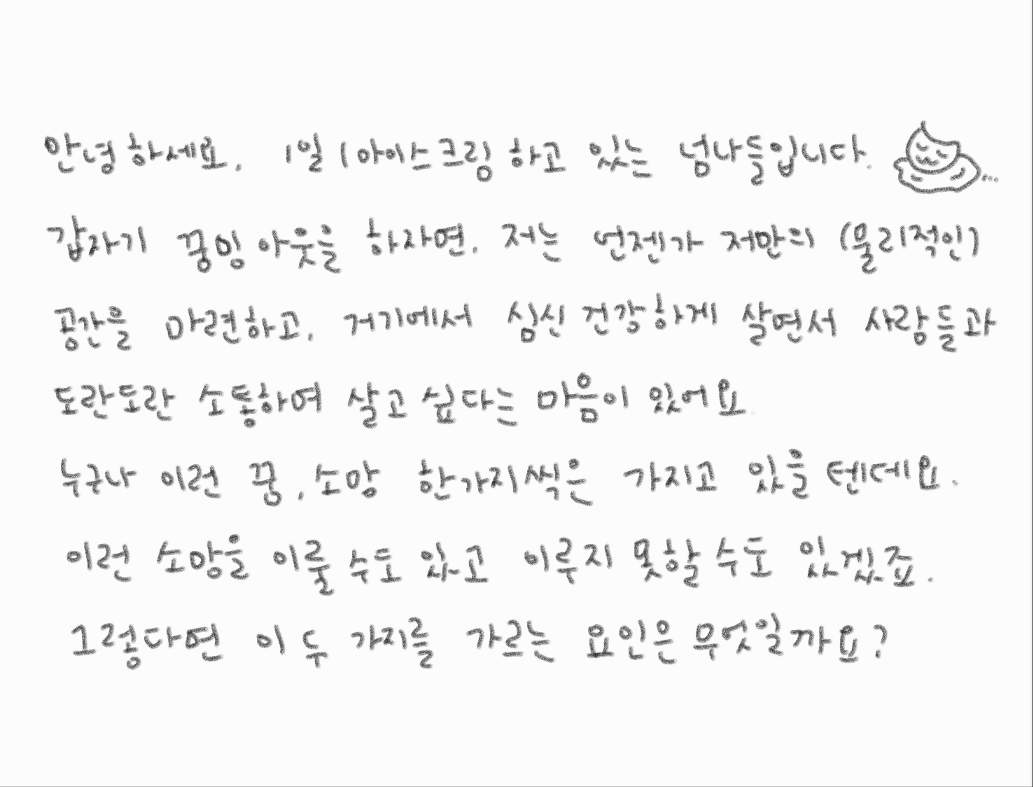 안녕하세요. 1일 1아이스크림 하고 있는 넘나들입니다. ...
갑자기 꿈밍아웃을 하자면, 저는 언젠가 저만의 (물리적인)
공간을 마련하고, 거기에서 심신 건강하게 살면서 사람들과
도란도란 소통하며 살고 싶다는 마음이 있어요.
누구나 이런 꿈, 소망 한가지씩은 가지고 있을 텐데요.
이런 소망을 이룰 수도 있고 이루지 못할 수도 있겠죠.
그렇다면 이 두 가지를 가르는 요인은 무엇일까요?